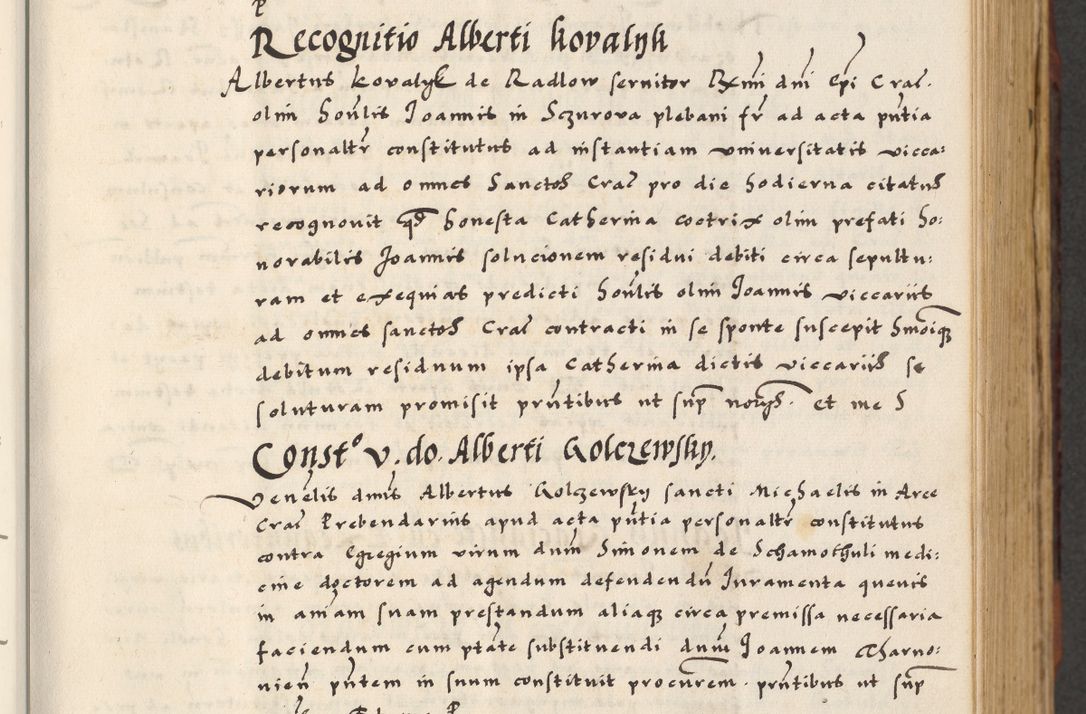 Recognitio Alberti kovalyk
Albertus kovalyk de Radlow servitor Rxmi dni Epi Crac.
olim honlis Joannis in Sczurova plebani fr ad acta pntia
personaltr constitutus ad instantiam universitatis vicca:
riorum ad omnes Sanctos Crac pro die hodierna citatus
recognovit qd honesta Catherina coctrix olim prefati ho:
norabilis Joannis solucionem residui debiti circa sepultu:
ram et exequias predicti honlis olim Joannis viccariis
ad omnes sanctos Crac contracti in se sponte suscepit hmoiq
debitum residuum ipsa Catherina dictis viccariis se
soluturam promisit pntibus ut sup et me S
Consto v. do. Alberti Golczewsky.
Venelis dnus Albertus Golczewsky sancti Michaelis in Arce
Crac Prebendarius apud acta pntia personaltr constitutus
contra Egregium virum dum Simonem de Schamothuli medi:
cine doctorem ad agendum defendendu Juramenta quevis
in aniam suam prestandum aliaq circa premissa necessaria
faciendum cum ptate substituendi dnum Joannem Tharno:
vien pntem in suum constituit procurem. pntibus ut sup